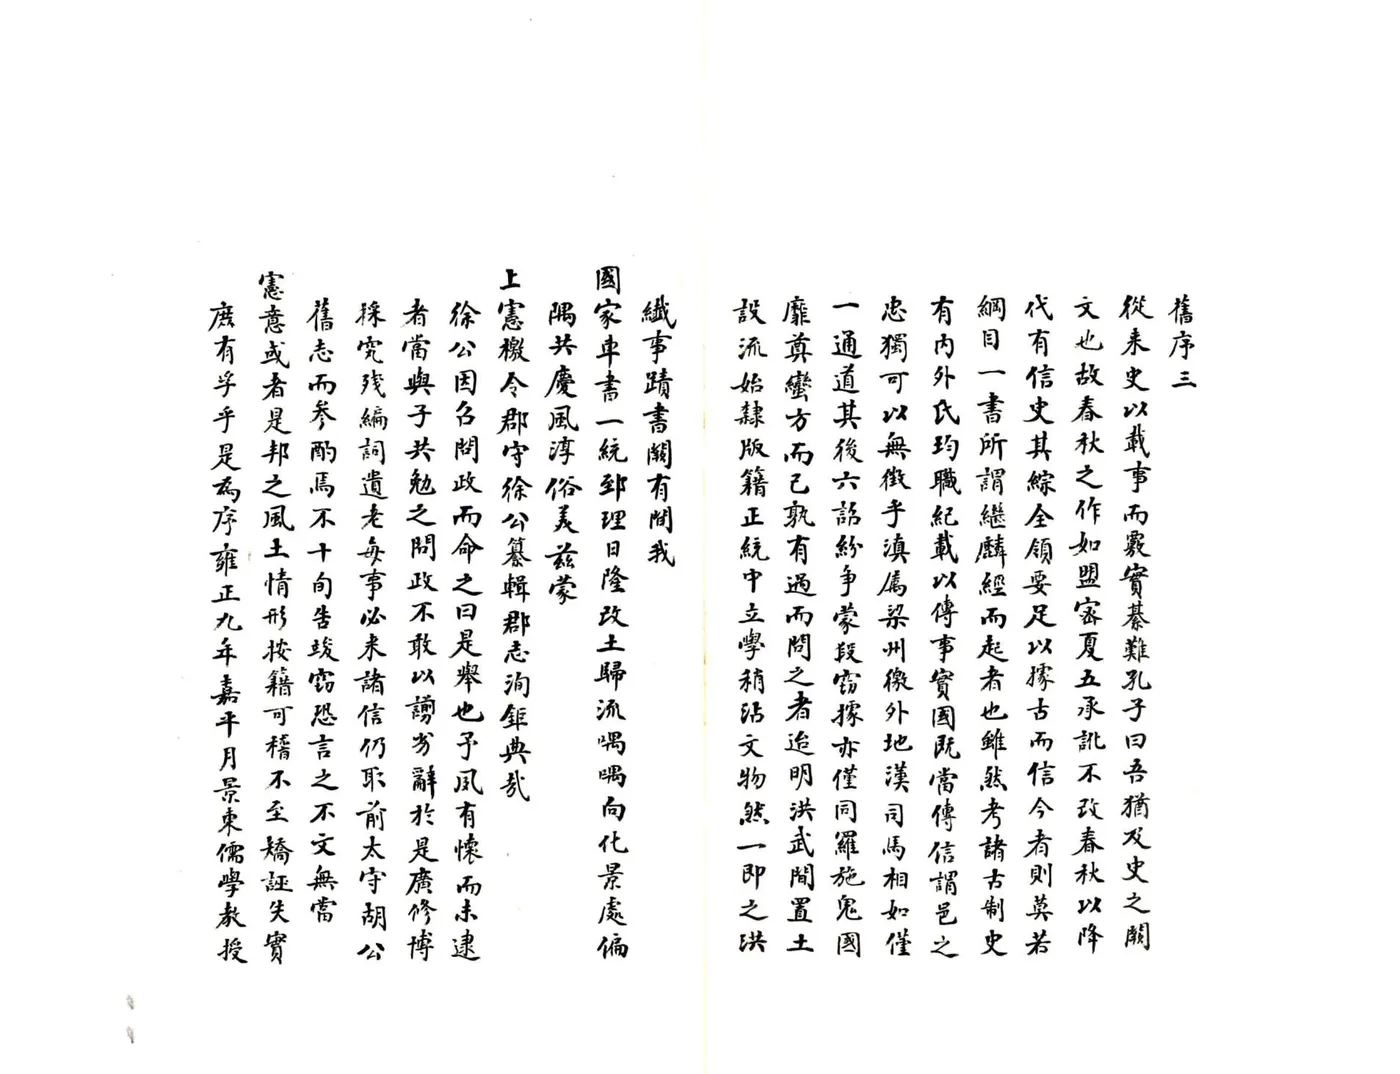 舊序三
從来史以載事而覈實綦難孔子曰吾猶及史之闕
文也故春秋之作如盟密夏五承訛不改春秋以降
代有信史其綜全領要足以據古而信今者則莫若
綱目一書所謂繼麟經而起者也雖然考諸古制史
有内外氏均職紀載以傳事實國既當傳信謂邑之
志獨可以無徵乎滇属梁州徼外地漢司馬相如僅
一通道其後六詔紛争蒙段竊據亦僅同羅施鬼國
靡莫蠻方而已孰有過而問之者迨明洪武間置土
設流始隸版籍正統中立學稍沾文物然一即之洪
纖事蹟書闕有間我
國家車書一統郅理日隆改土歸流喁喁向化景處偏
隅共慶風淳俗美兹蒙
上憲檄令郡守徐公纂輯郡志洵鉅典哉
徐公因召問政而命之曰是舉也予夙有懷而未逮
者當與子共勉之問政不敢以謭劣辭於是廣修博
採究残編詞遺老每事必来諸信仍取前太守胡公
舊志而参酌焉不十旬告竣竊恐言之不文無當
憲意或者是邦之風土情形按籍可稽不至矯誣失實
庶有孚乎是為序雍正九年嘉平月景東儒學教授